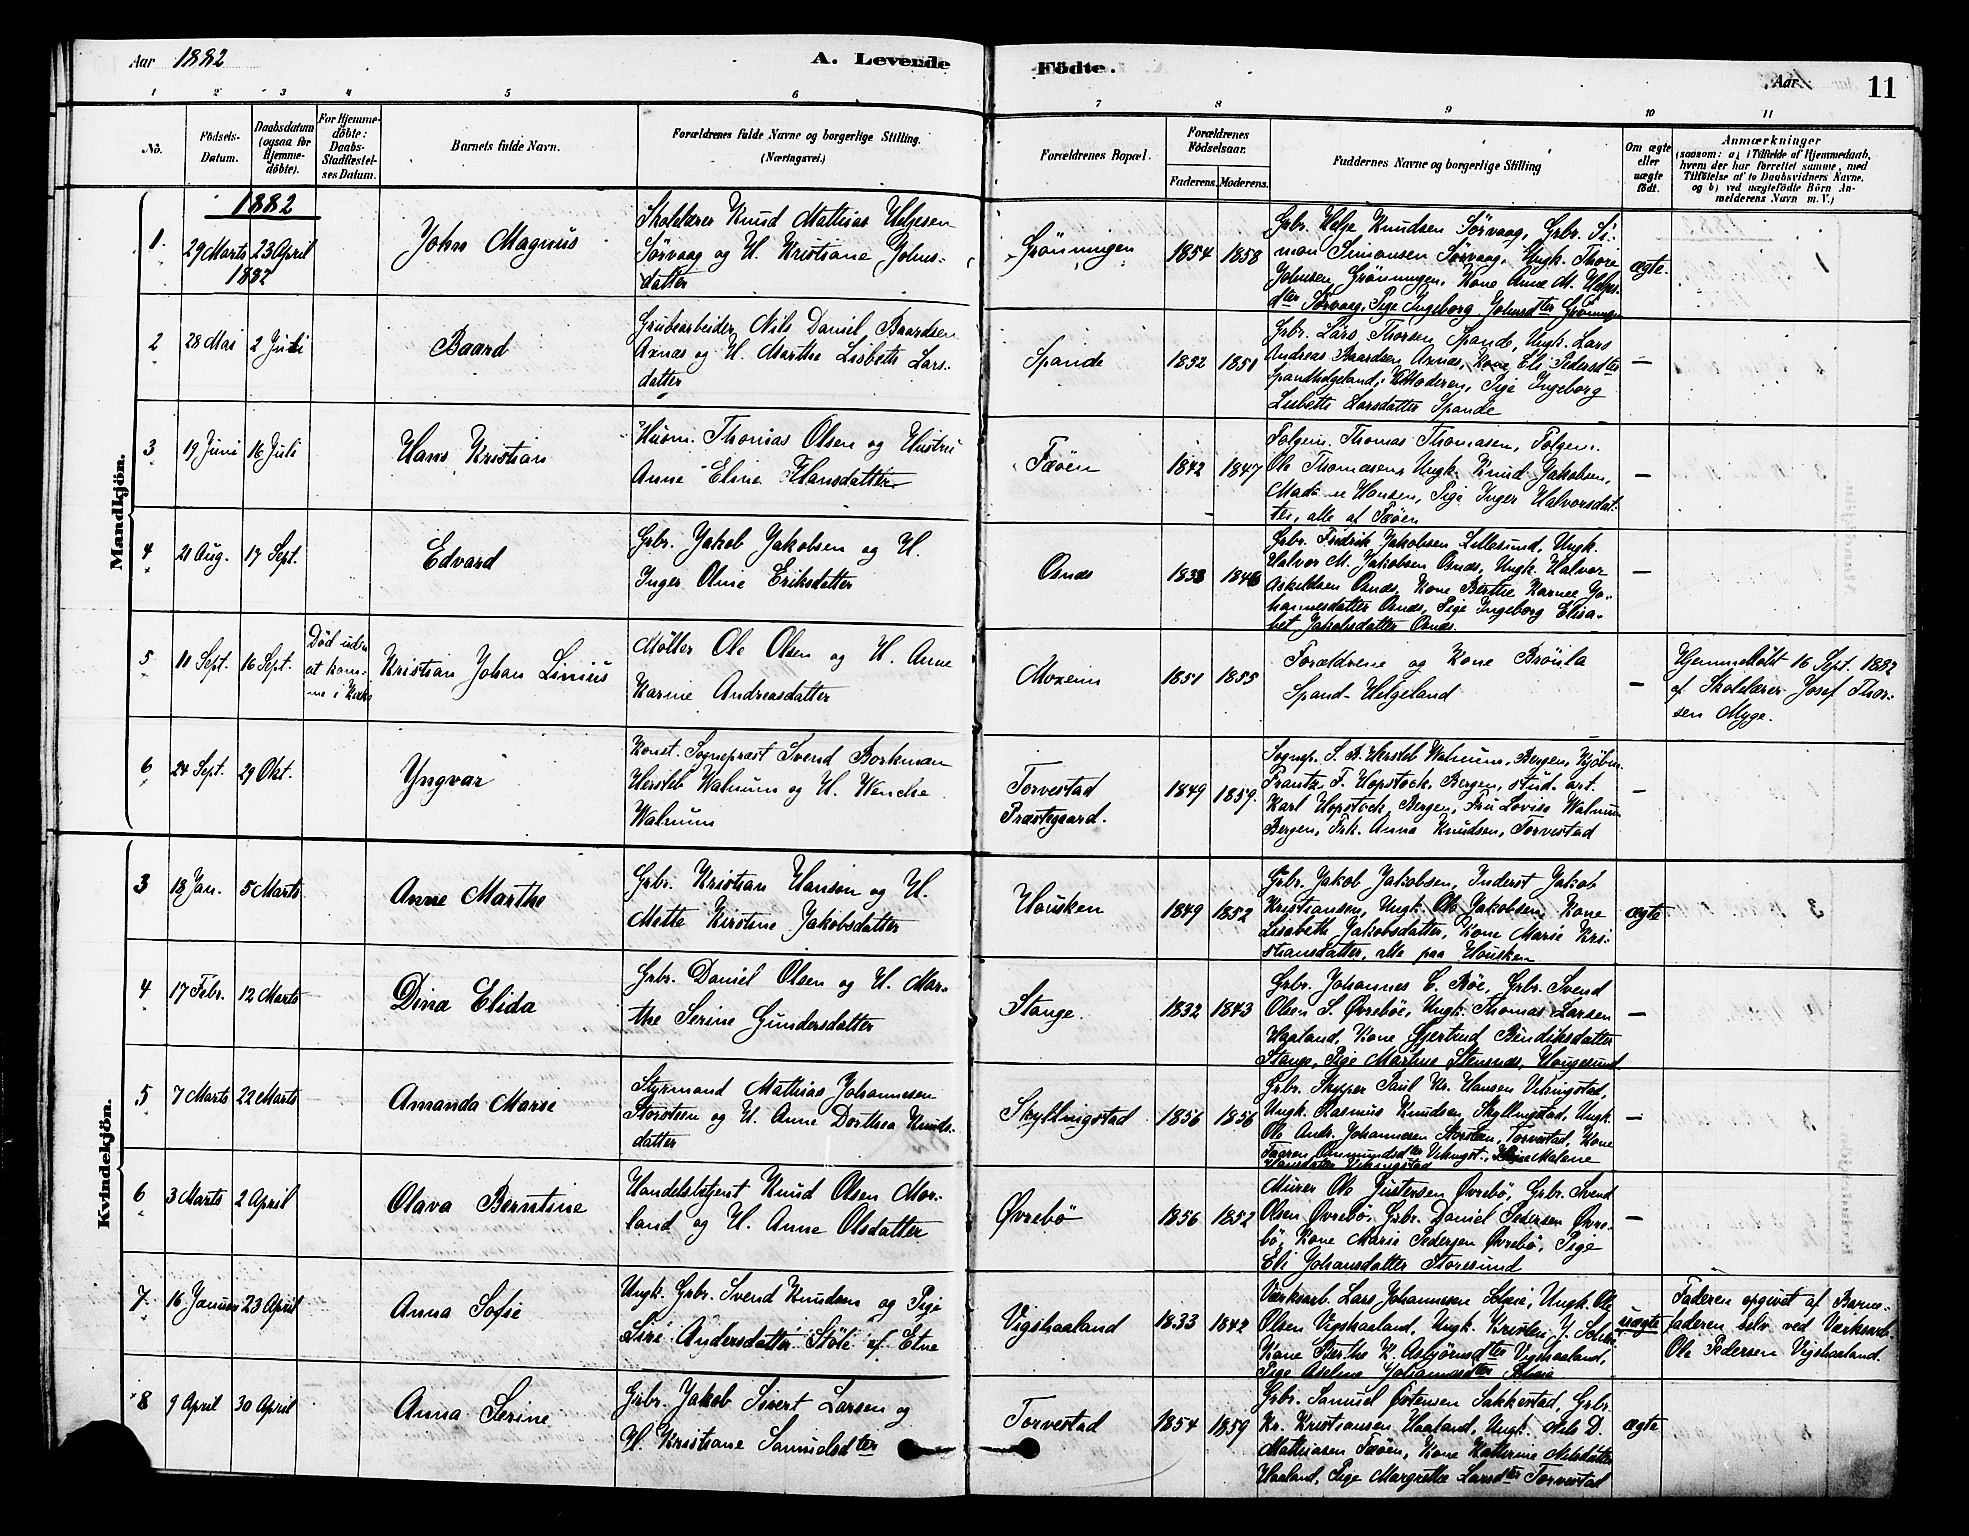 Aar 1882
A. Levende
Födte.
Aar
11
1
2
3
4
5
6
7
8
9
10
11
No.
Födsels-
Datum.
Daabsdatum
(ogsaa for
Hjemme-
döbte).
For Hjemme-
döbte:
Daabs-
Stadfæstel-
ses Datum.
Barnets fulde Navn.
Forældrenes fulde Navne og borgerlige Stilling.
(Næringsvei.)
Forældrenes Bopæl.
Forældrenes
Födselsaar.
Faderens.
Moderens.
Faddernes Navne og borgerlige Stilling
Om ægte
eller
uægte
födt.
Anmærkninger
(saasom: a) i Tilfælde af Hjemmedaab,
hvem der har forrettet samme, med
Tilföielse af to Daabsvidners Navne,
og b) ved uægtefödte Börn An-
melderens Navn m. V.)
Mandkjön.
1882
1
29 Marts
1882
23 April
John Magnus
Skolelærer Knud Mathias Helgesen
Sørvaag og H. Kristiane Johns-
datter
Grönningen
1854
1858
Grbr. Helje Knudsen Sørvaag, Grbr. Si-
mon Simonsen Sørvaag, Ungk. Thore
Johnsen Grönningen, Kone Anne M. Helges-
dter Sørvaag, Pige Ingeborg Johnsdter Grönningen
ægte.
2
28 Mai
2 Juli
Baard
Grubearbeider Nils Daniel Baardsen
Axnas og H. Marthe Lisbeth Lars-
datter
Spande
1852
1851
Grbr. Lars Thorsen Spande, Ungk. Lars
Andreas Baardsen Axnas, Kone Eli Pedersdter
Spandhelgeland, Moderen, Pige Ingeborg
Lisbeth Larsdatter Spande
—
3
19 Juni
16 Juli
Hans Kristian
Husm. Thomas Olsen og Hustru
Anne Eline Hansdatter
Fæöen
1842
1847
Folgem. Thomas Thomasen, Folgem.
Ole Thomasen, Ungk. Knud Jakobsen,
Hansen, Pige Inger Halvorsdat-
ter, alle af Fæöen
—
4
21 Aug.
17 Sept.
Edvard
Grbr. Jakob Jakobsen og H.
Inger Oline Eriksdatter
Osnes
1838
1846
Grbr. Fredrik Jakobsen Lillesund, Ungk.
Halvor M. Jakobsen Osnes, Ungk. Halvor
Askeldsen Osnes, Kone Berthe Karnee Jo-
hannesdatter Osnes, Pige Ingeborg Elisa-
bet Jakobsdatter Osnes.
—
5
11 Sept.
16 Sept.
Död uden
at kom-
me i Kirke
Kristian Johan Linius
Møller Ole Olsen og H. Anne
Karine Andreasdatter
Moxeim
1851
1855
Forældrene og Kone Bröila
Spand-Helgeland
—
Hjemmedöbt 16 Sept. 1882
af Skolelærer Josef Thor-
sen Myge.
6
24 Sept.
29 Okt.
Yngvar
Konst. Sognepræst Svend Borkman
Hersleb Walnum og H. Wenche
Walnum
Torvestad
Præstegaard.
1849
1859.
Sognep. S. B. Hersleb Walnum, Bergen, Kjöbm.
Frantz F. Hopstock, Bergen, stud. art.
Karl Hopstock, Bergen, Fru Lovise Walnum
Bergen, Frk. Anna Knudsen, Torvestad
—
Kvindekjön.
3
18 Jan.
5 Marts
Anne Marthe
Grbr. Kristian Hansen og H.
Mette Kirstine Jakobsdatter
Housken
1849
1852
Grbr. Jakob Jakobsen, Inderst Jakob
Kristiansen, Ungk. Ole Jakobsen, Kone
Lisabeth Jakobsdatter, Kone Marie Kri-
stiansdatter, alle paa Housken
ægte
4
17 Febr.
12 Marts
Dina Elida
Grbr. Daniel Olsen og H. Mar-
the Serine Gundersdatter
Stange.
1832
1843
Grbr. Johannes C. Böe, Grbr. Svend
Olsen S. Øvreboe, Ungk. Thomas Larsen
Haaland, Kone Gjertrud Bendiksdatter
Stange, Pige Martine Stensnes, Hougesund
—
5
7 Marts
22 Marts
Amanda Marie
Styrmand Mathias Johannesen
Storsten og H. Anne Dorthea Knuds-
datter
Skyllingstad
1856
1856
Grbr. Skipper Paul Kr. Hansen Vikingstad,
Ungk. Rasmus Knudsen Skyllingstad, Ungk.
Ole Andr. Johannesen Storsten, Torvestad, Kone
Taaren Ommundsdter Vikingst., Pige Malene
Hansdatter Vikingstad
—
6
3 Marts
2 April
Olava Berntine
Handelsbetjent Knud Olsen Mor-
land og H. Anne Olsdatter
Øvrebö
1856
1852
Murer Ole Gustersen Øvrebö, Grbr. Svend
Olsen Øvrebö, Grbr. Daniel Pedersen Øvre-
bö, Kone Marie Pedersen Øvrebö, Pige
Eli Johansdatter Storesund
—
7
16 Januar
23 April
Anna Sofie
Ungk. Grbr. Svend Knudsen og Pige
Siri Andersdatter Støle af Etne
Vigshaaland
1833
1842
Værksarb. Lars Johannesen, Ungk. Ole
Olsen Vigshaaland, Ungk. Kristen J.
Kone Berthe K. Asbjörnsdter Vigshaaland,
Pige Aseline Johannesdter
uægte
Faderen opgivet af Barne-
faderen selv ved Værksarb.
Ole Pedersen Vigshaaland.
8
9 April
30 April
Anna Serine
Grbr. Jakob Sivert Larsen og
H. Kristiane Samuelsdter
Torvestad
1854
1859
Grbr. Samuel Östensen Sakkestad, Grbr.
Kr. Kristiansen Haaland, Ungk. Nils D.
Mathiasen Fæöen, Kone Katherine Nilsdatter
Haaland, Pige Margrethe Larsdter Torvestad
ægte